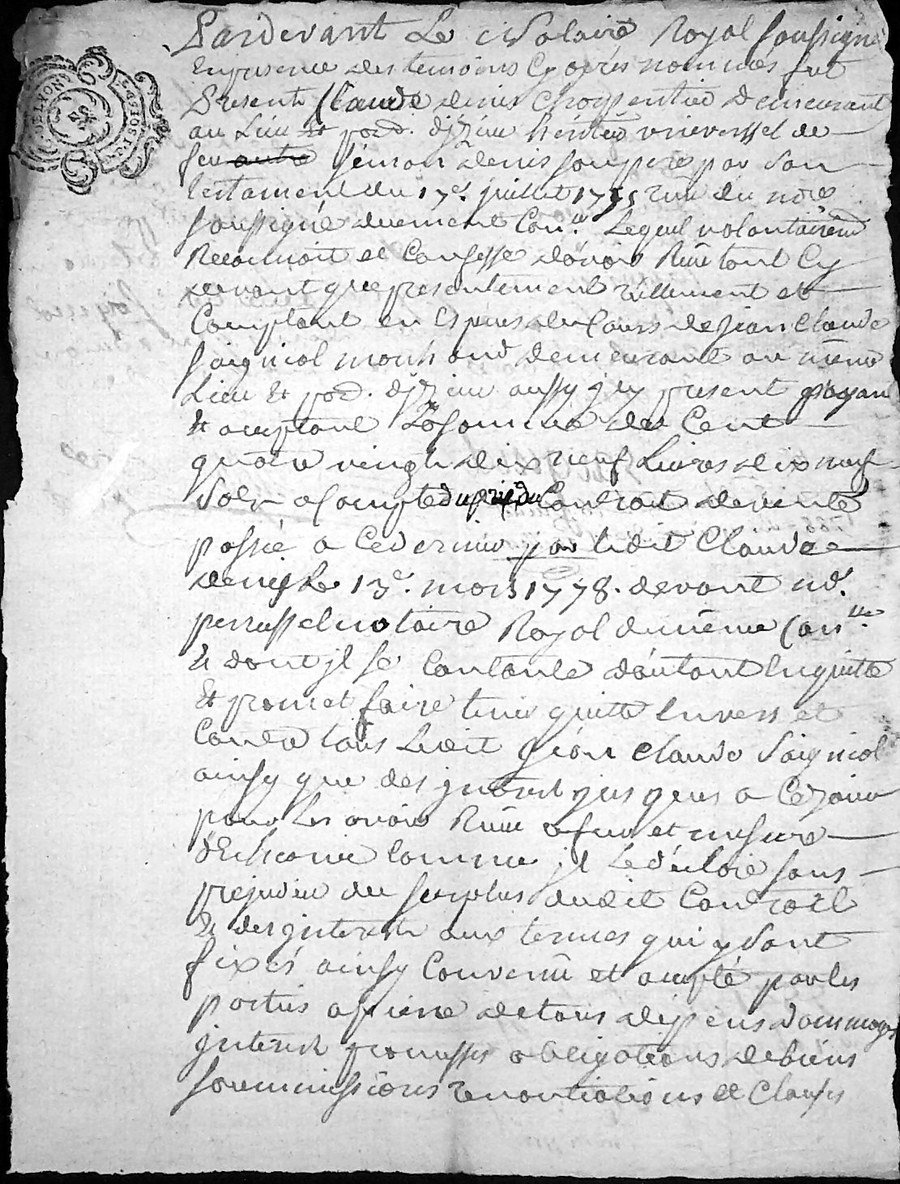 Pardevant Le Notaire Royal soussigné
En presence des temoins Cy après nommés fut
Present Claude denis Charpentier demeurant
au Lieu & par. d'izieu héritier universsel de
feu autre Simon denis son pere par son
testament du 17e. juillet 1775 reçu du no.re
soussigné duement Con.lé Lequel volontairemt
Reconnoit et Confesse d'avoir Reçu tant Cy
devant que presentement réellement et
Comptant en Espèces du Cours de Jean Claude
Saignol march and demeurant au même
Lieu & par. d'izieu aussy jcy present payant
& acceptant La somme de Cent
quatre vingt dix neuf Livres dix neuf
Sols a Compte du prix du Contrat de vente
passée a Ce dernier par ledit Claude
denis Le 13e. mars 1778. devant me.
perrussel notaire Royal dument Con.lle
& dont jl se Contante d'autant En quitte
& promet faire tenir quitte Envers et
Contre tous Ledit Jean Claude Saignol
ainsy que des jnterets jusques a Ce jour
pour Les avoir Reçu a fur et mesure
d'Echeance Comme jl Le déclare sans
prejudice du surplus dudit Contrat
& des jnterets aux termes qui y sont
fixés ainsy Convenu et accepté par les
parties a peine de tous dépens dommages
jnterets promesses obligations de biens
soummissions renontiations et Clauses